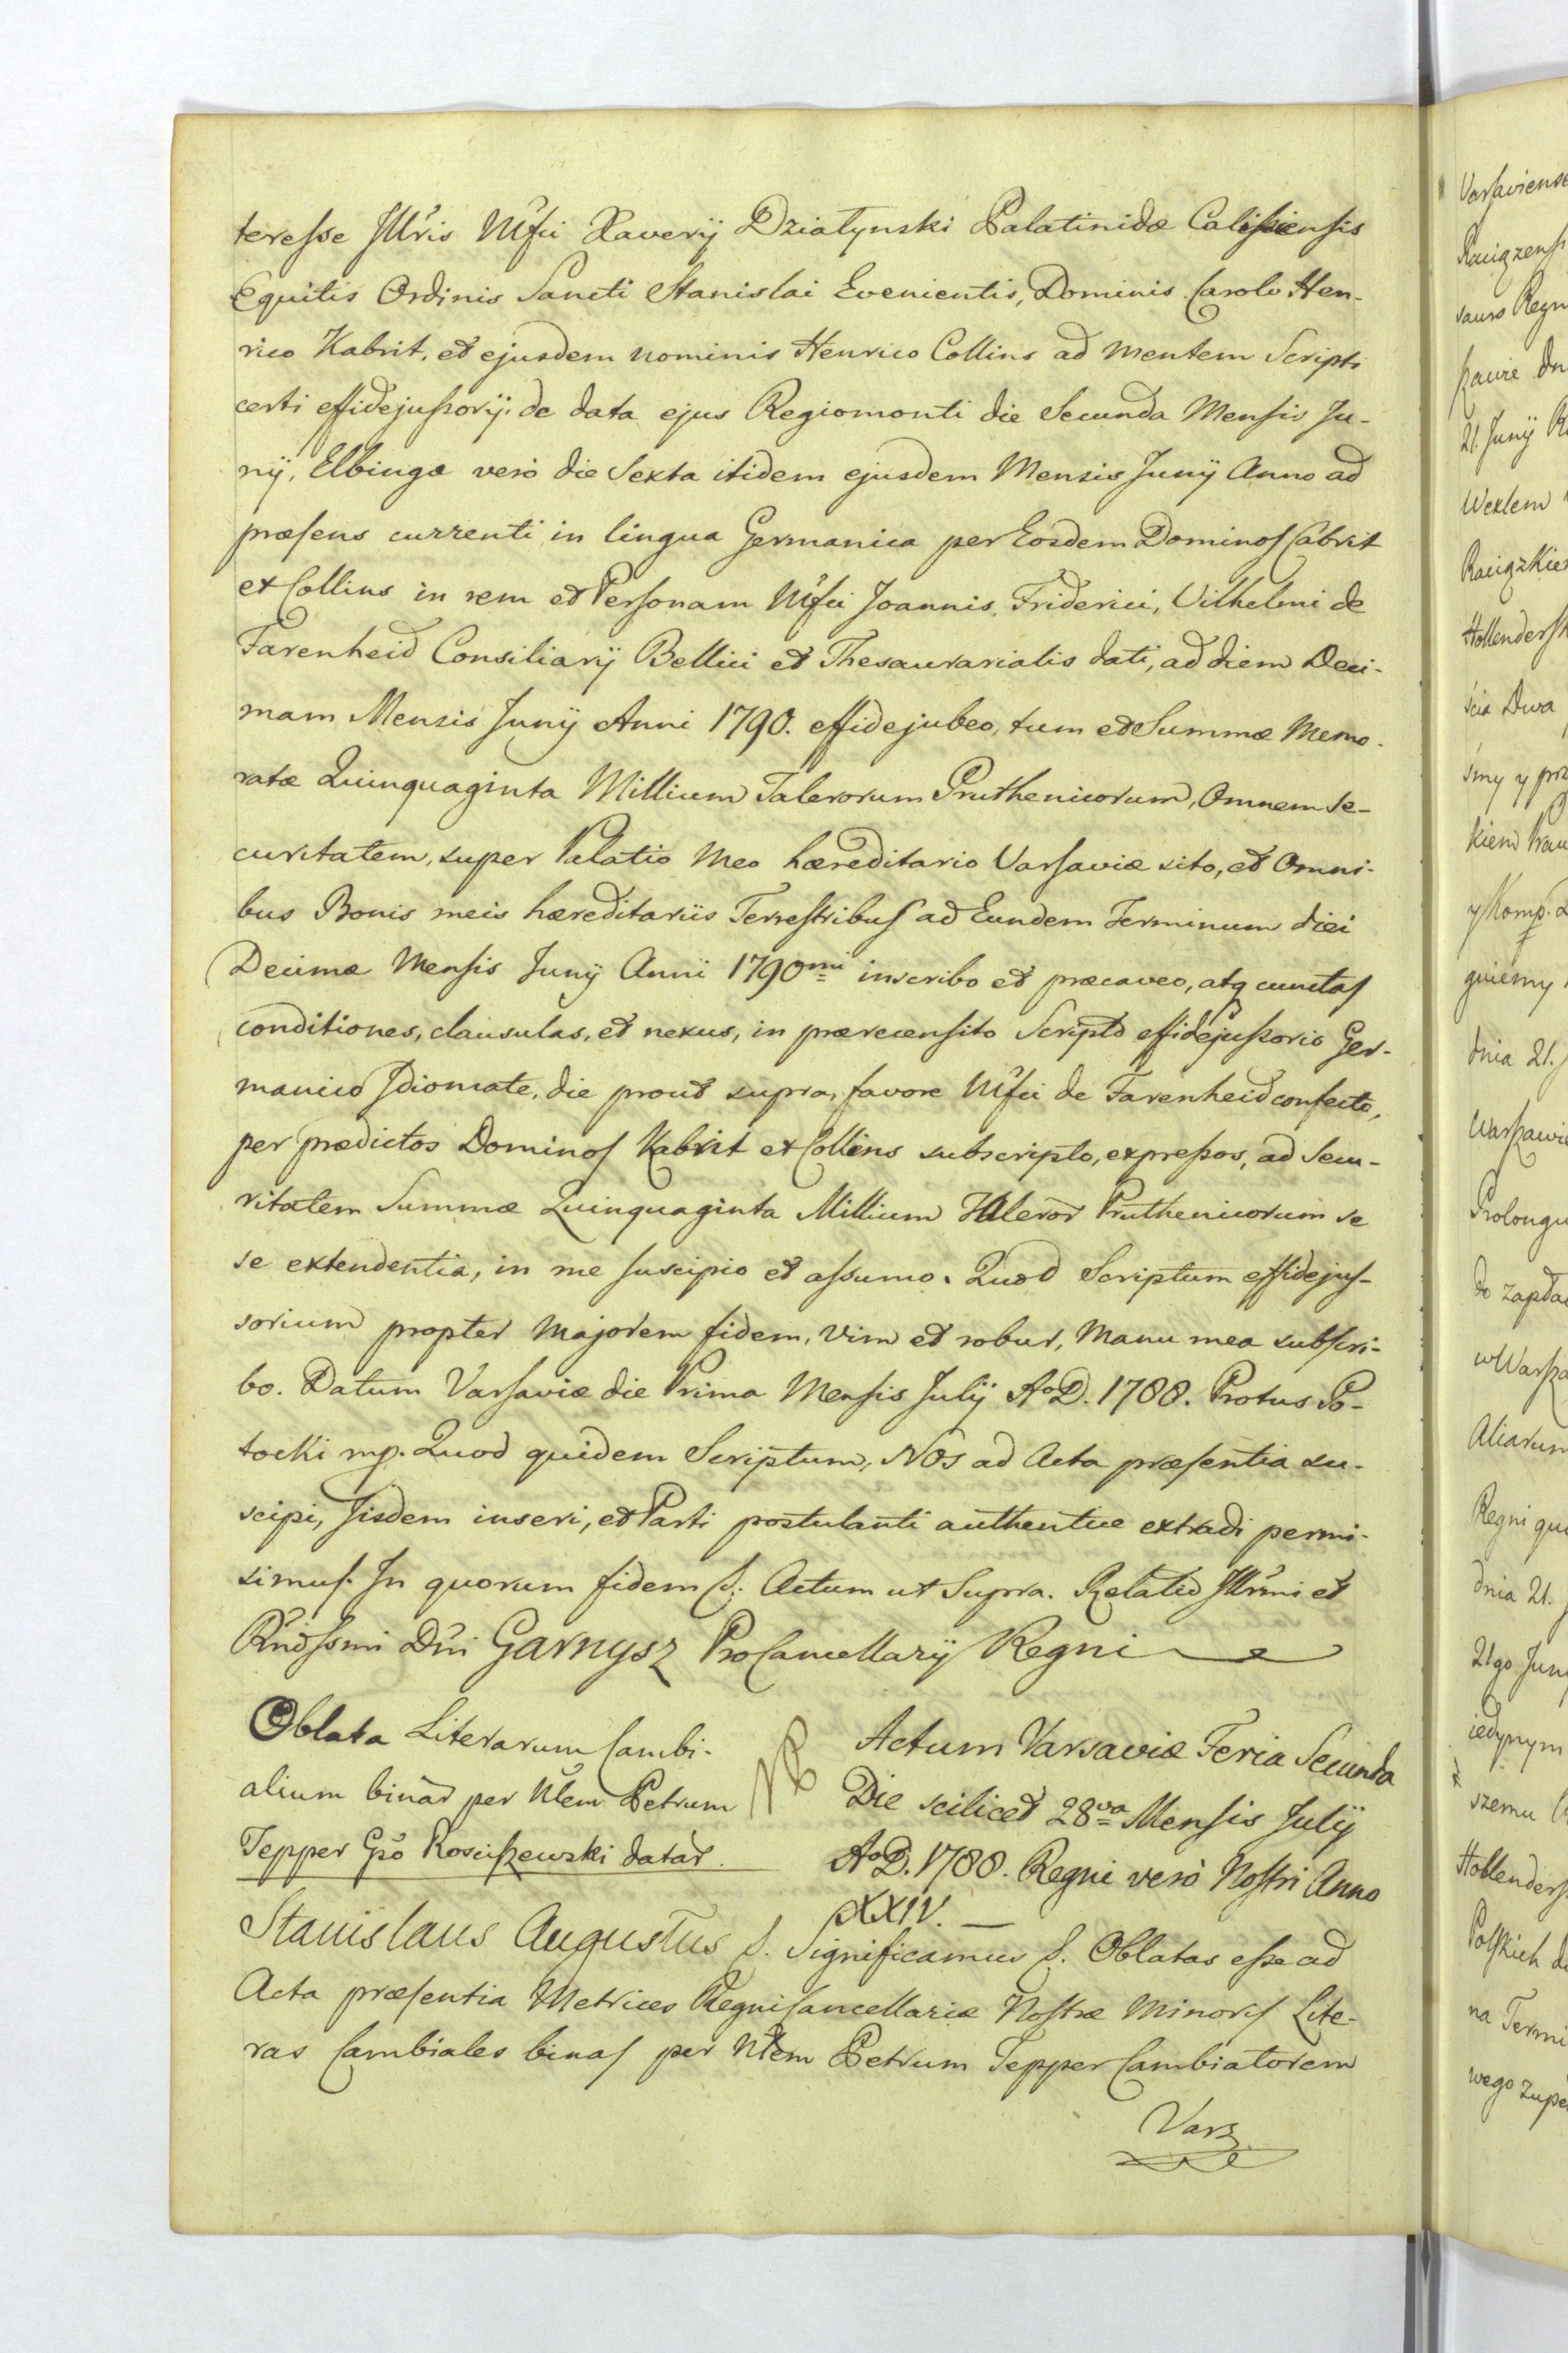 teresse Jllris Mfci Xaverij Działynski Palatinidæ Calissiensis
Equitis Ordinis Sancti Stanislai Evenientis, Dominis Carolo Hen-
rico Kabrit, et ejusdem nominis Henrico Collins ad mentem Scripti
certi effidejussorij de data ejus Regiomonti die Secunda Mensis Ju-
nij, Elbingæ verò die Sexta itidem ejusdem Mensis Junij Anno ad
præsens currenti in lingua Germanica per Eosdem Dominos Cabrit
et Collins in rem et Personam Mfci Joannis, Friderici, Vilhelmi de
Farenheid Consiliarij Bellici et Thesaurarialis dati, ad diem Deci-
mam Mensis Junij Anni 1790. effidejubeo, tum et Summæ Memo-
ratæ Quinquaginta Millium Talerorum Pruthenicorum, Omnem se-
curitatem, super Palatio Meo hæreditario Varsaviæ sito, et Omni-
bus Bonis meis hæreditariis Terrestribus ad Eundem Terminum diei
Decimæ Mensis Junij Anni 1790mi inscribo et præcaveo, atq cunctas
conditiones, clausulas, et nexus, in prærecensito Scripto effidejussorio Ger-
manico Jdiomate, die prout supra, favore Mfci de Farenheid confecto,
per prædictos Dominos Kabrit et Collins subscripto, expressos, ad Secu-
ritatem Summæ Quinquaginta Millium Taleror Pruthenicorum se
se extendentia, in me suscipio et assumo. Quod Scriptum effidejus-
sorium propter Majorem fidem, vim et robur, Manu mea subscri-
bo. Datum Varsaviæ die Prima Mensis Julij AoD. 1788. Protus Po-
tocki mp. Quod quidem Scriptum, Nos ad Acta præsentia su-
scipi, Jisdem inseri, et Parti postulanti authentice extradi permi-
simus. Jn quorum fidem &. Actum ut Supra. Relatio Jllrmi et
Rndssmi Dni Garnysz ProCancellarij Regni
Oblata Literarum Cambi-
alium binar per Nlem Petrum
Tepper Gso Rosciszewski datar.
NB
Actum Varsaviæ Feria Secunda
Die scilicet 28va Mensis Julij
AoD. 1788. Regni verò Nostri Anno
XXIV.
Stanislaus Augustus &. Significamus &. Oblatas esse ad
Acta præsentia Metrices Regni Cancellariæ Nostræ Minoris Lite-
ras Cambiales binas per Nlem Petrum Tepper Cambiatorem
Vars
Varsaviense
sauro Regn
21. Junij
Wexlem
Hollendersk
scia Dwa
y Komp.
dnia 21.
Prolongu
do zapła
w Warsza
Aliarum
Regni qu
dnia 21.
21go Jun
iedynym
szemu
Hollenders
Polskich
na Termi
wego zupe